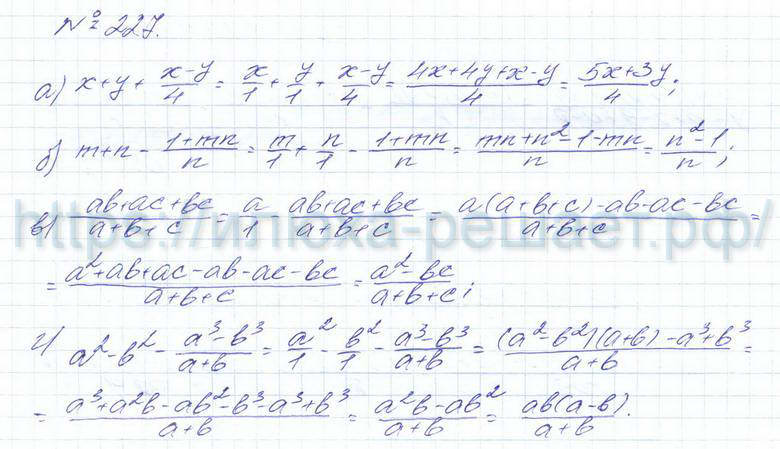 № 227.
а) x+y+ (x-y)/4 = x/1 + y/1 + (x-y)/4 = (4x+4y+x-y)/4 = (5x+3y)/4;
б) m+n - (1+mn)/n = m/1 + n/1 - (1+mn)/n = (mn+n²-1-mn)/n = (n²-1)/n;
в) (ab+ac+bc)/(a+b+c) = a/1 (ab+ac+bc)/(a+b+c) = (a(a+b+c)-ab-ac-bc)/(a+b+c) =
https://илюха-решает.рф/
= (a²+ab+ac-ab-ac-bc)/(a+b+c) = (a²-bc)/(a+b+c);
г) a²-b² - (a³-b³)/(a+b) = a²/1 - b²/1 - (a³-b³)/(a+b) = ((a²-b²)(a+b)-a³+b³)/(a+b) =
= (a³+a²b-ab²-b³-a³+b³)/(a+b) = (a²b-ab²)/(a+b) = ab(a-b)/(a+b).